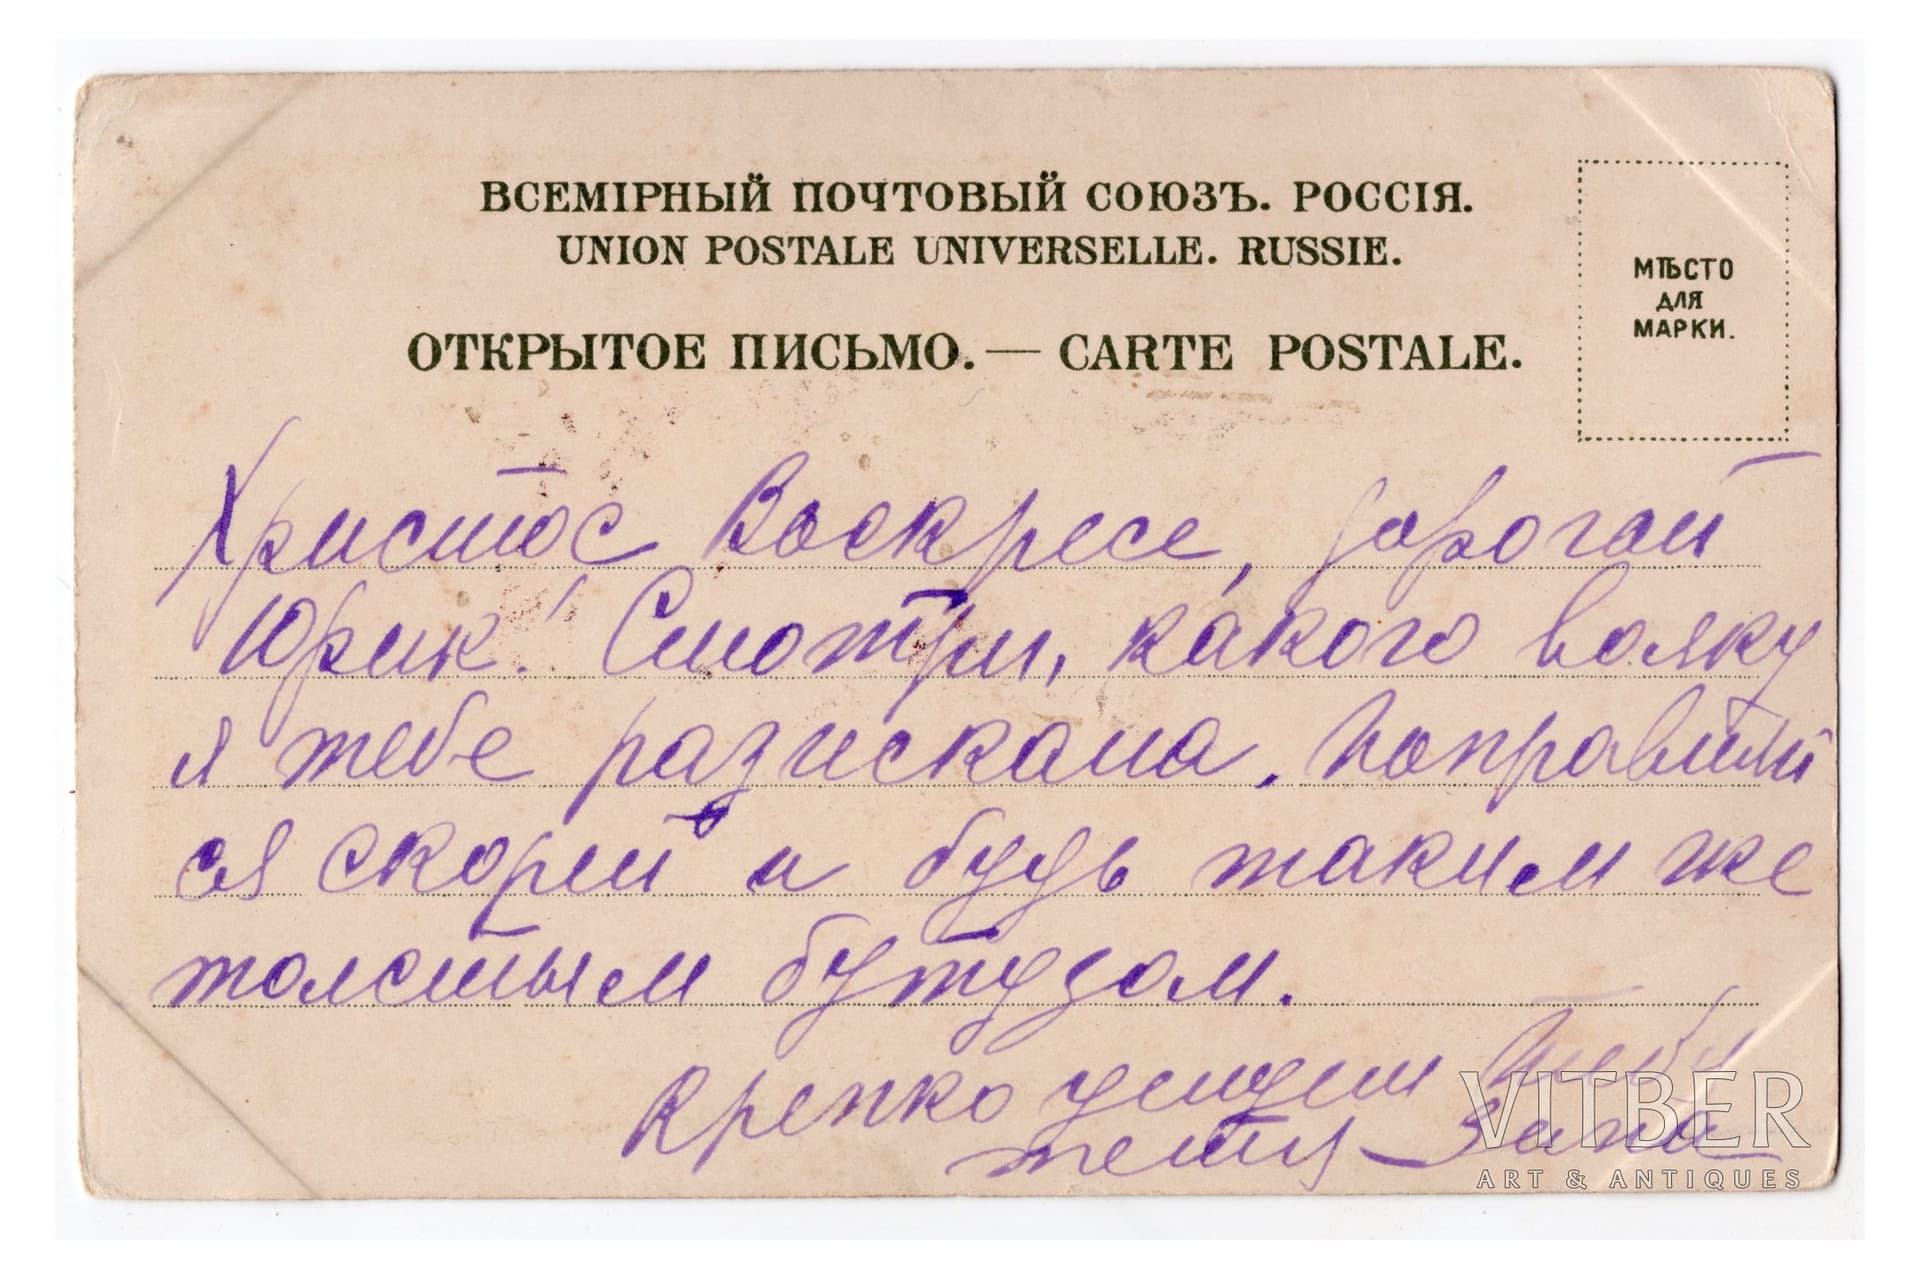 ВСЕМІРНЫЙ ПОЧТОВЫЙ СОЮЗЪ. РОССІЯ.
UNION POSTALE UNIVERSELLE. RUSSIE.
ОТКРЫТОЕ ПИСЬМО. — CARTE POSTALE.
МѢСТО
ДЛЯ
МАРКИ.
Христос Воскресе, дорогой
Юрик! Смотри, какого вояку
я тебе разискала. Поправляй
ся скорей и будь таким же
толстым бутузом.
Крепко целуем
тетя
VITBER
ART & ANTIQUES